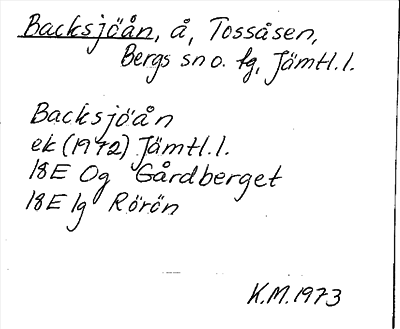 Backsjöån, å, Tossåsen,
Bergs sn o. tg, Jämtl.l.
Backsjöån
ek (1972) Jämtl.l.
18E 0g Gårdberget
18E 1g Rörön
K.M. 1973